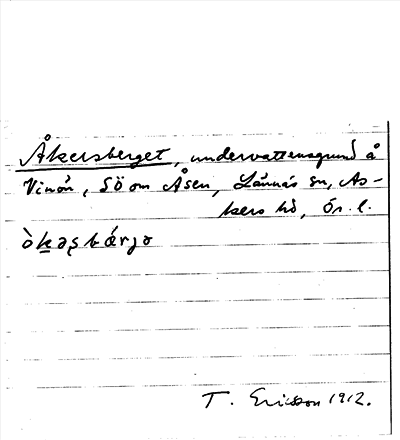 Åkersberget, undervattensgrund å
Vinön, SÖ om Åsen, Lännäs sn, As-
kers hd, Ör. l.
T. Ericsson 1912.